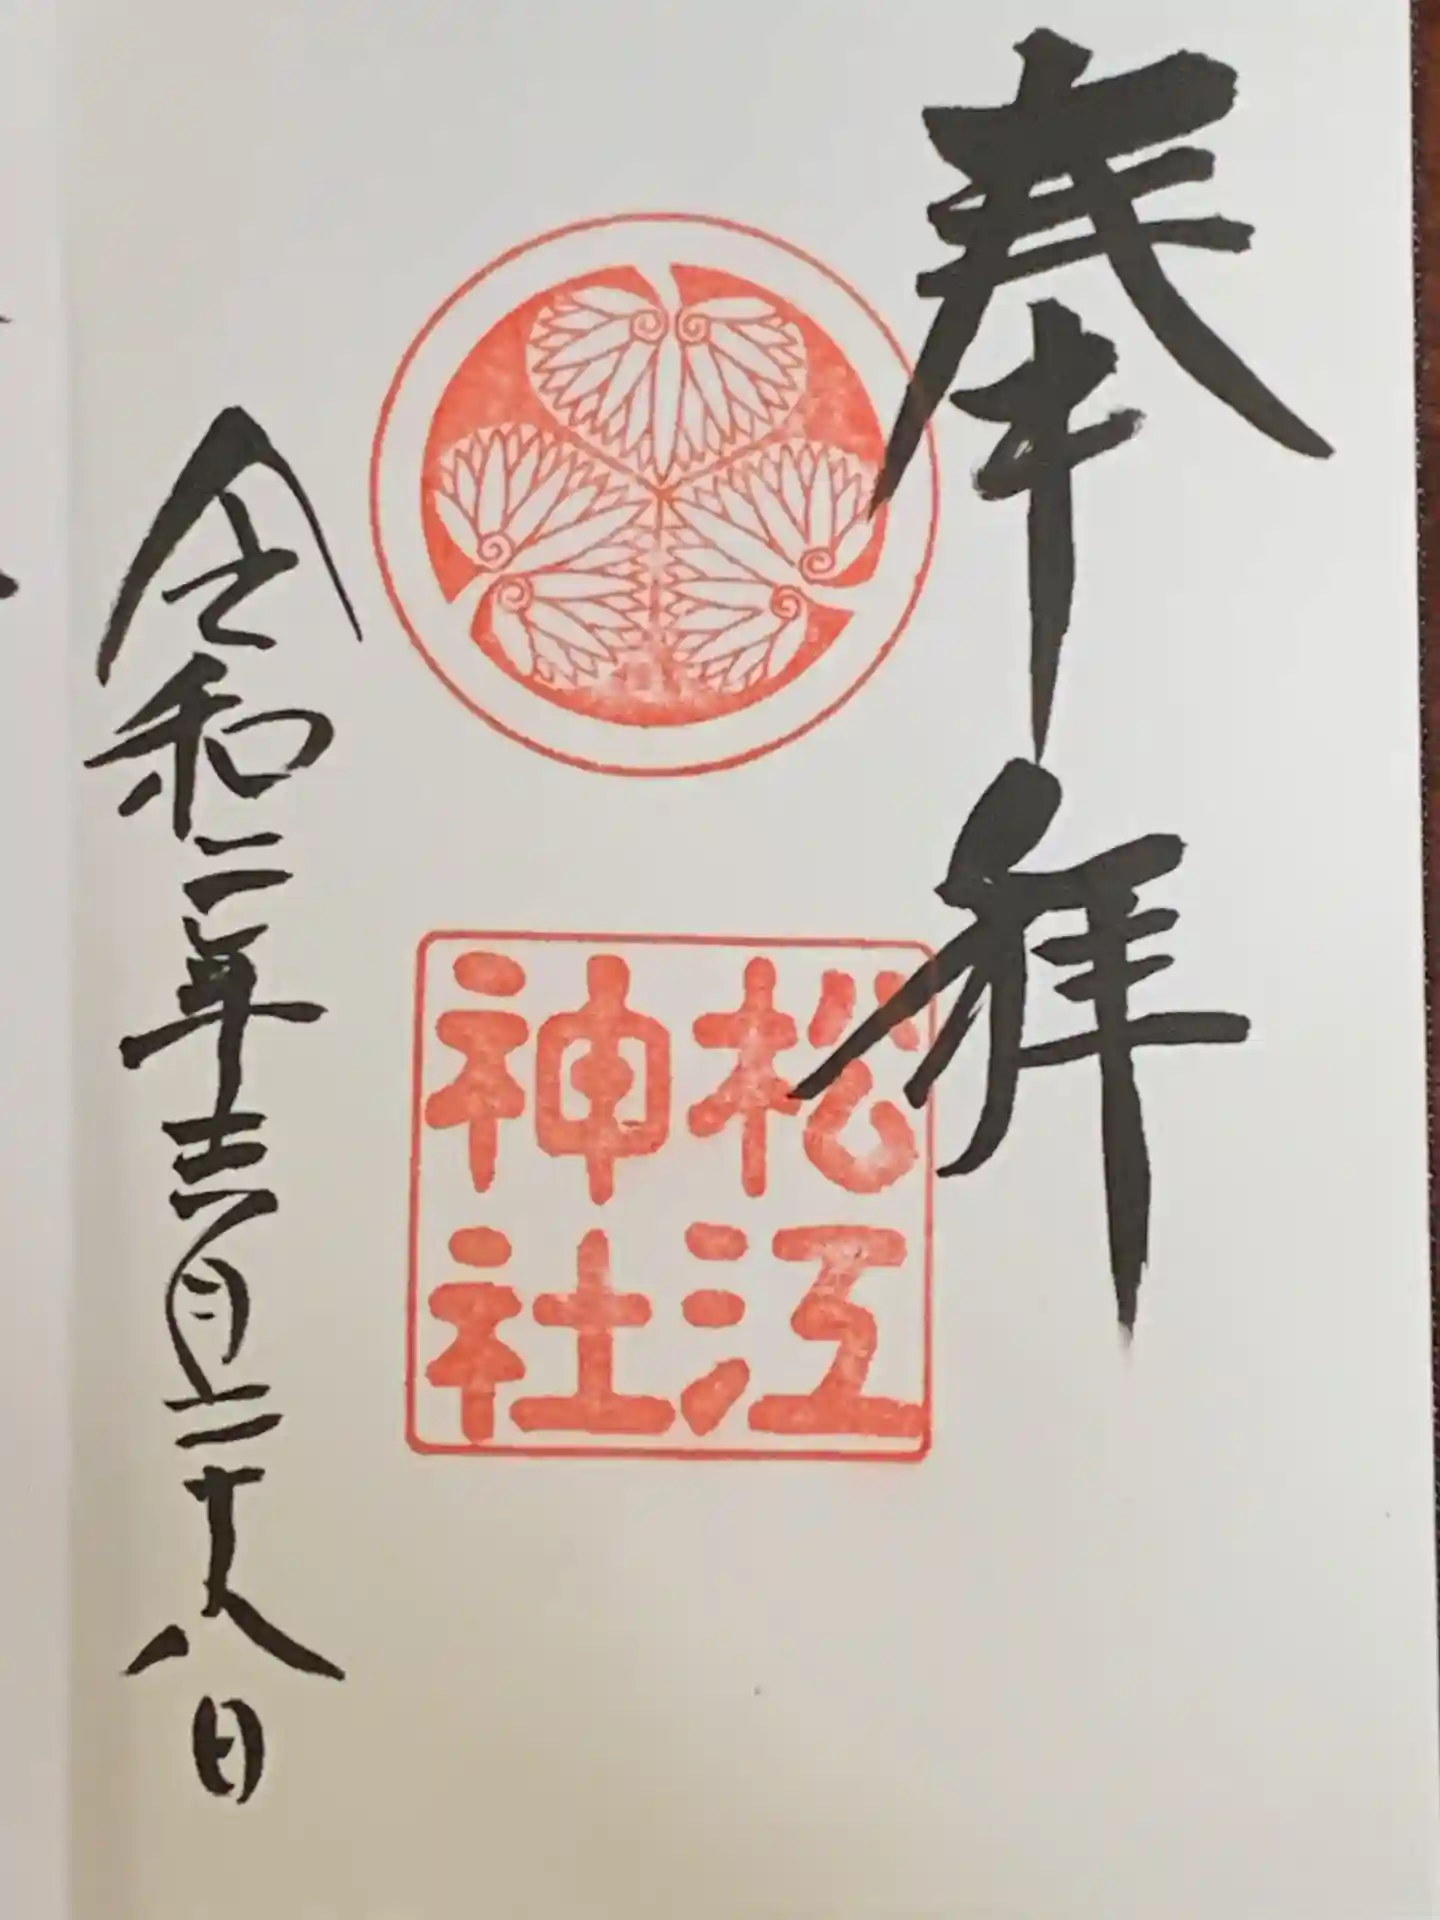 奉拝
松江
神社
令和二年三月二十八日